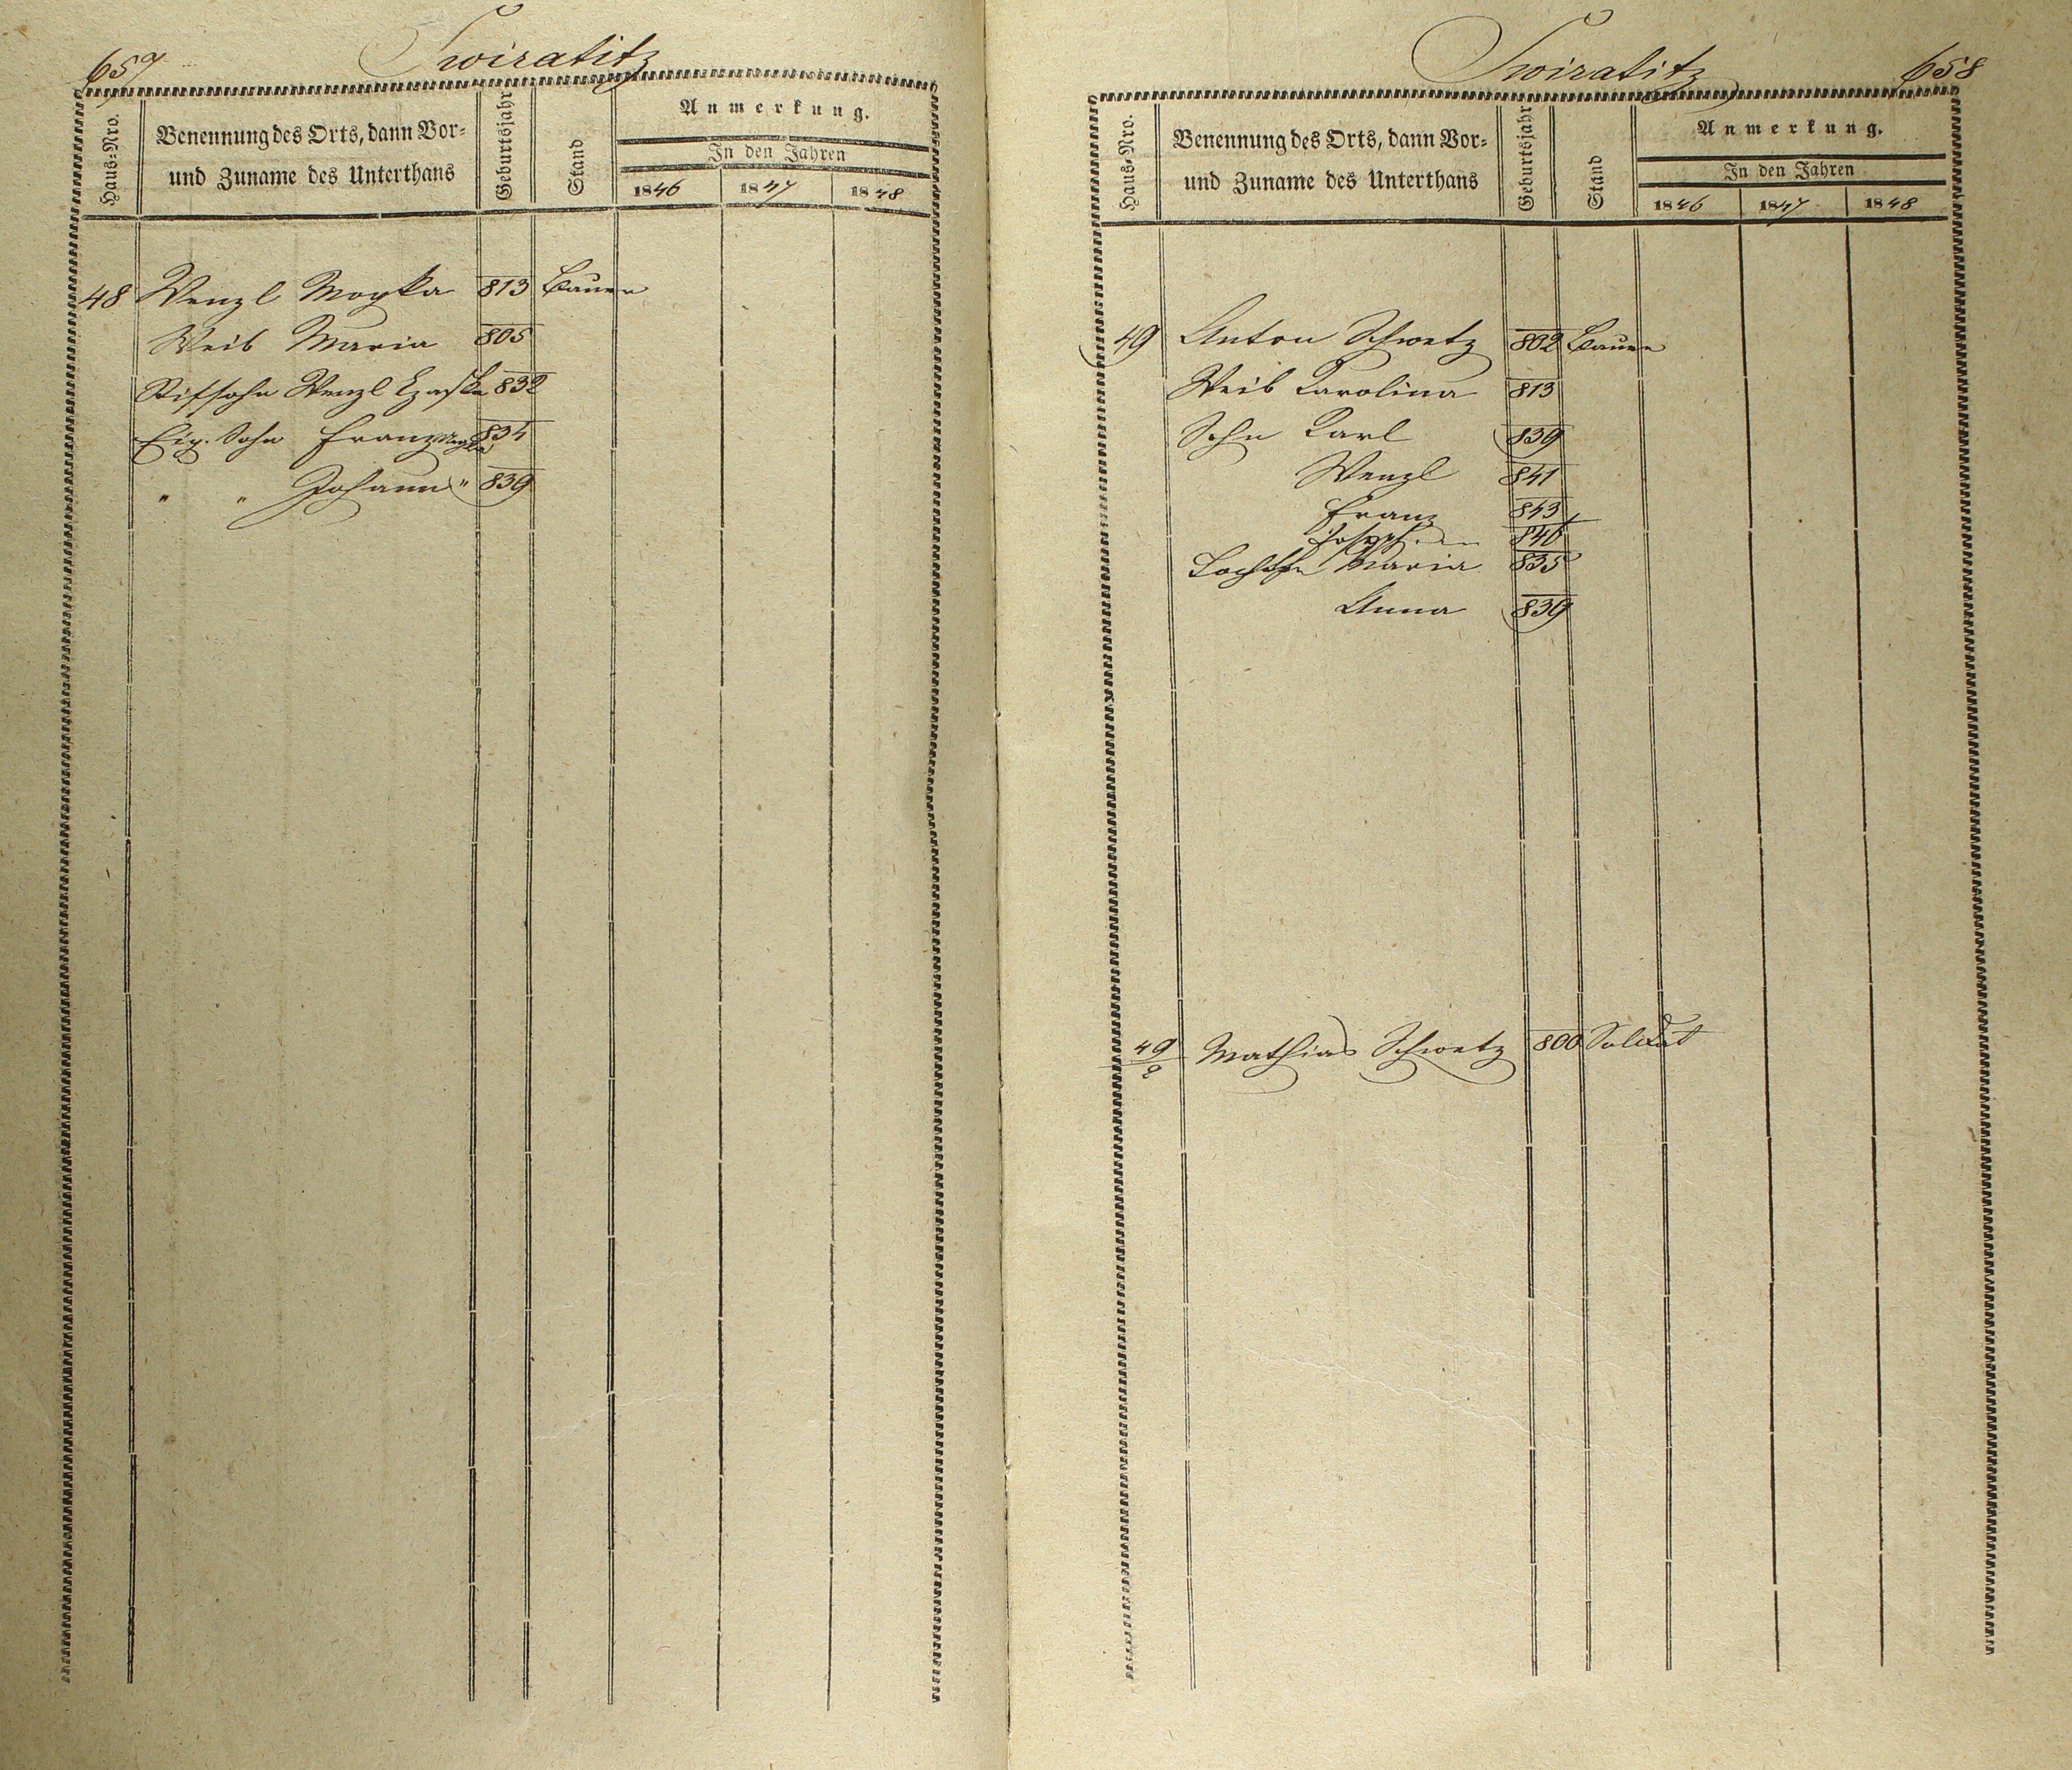 657
Swiratitz
Haus-Nro.
Benennung des Orts, dann Vor-
und Zuname des Unterthans
Geburtsjahr
Stand
Anmerkung.
In den Jahren
1846 1847 1848
48 Wenzl Mogka 813 Bauer
Weib Maria 805
Stifsohn Wenzl 832
Eig. Sohn Franz 834
" " Johann " 839
Swiratitz
658
Haus-Nro.
Benennung des Orts, dann Vor-
und Zuname des Unterthans
Geburtsjahr
Stand
Anmerkung.
In den Jahren
1846 1847 1848
49 Anton Schwetz 802 Bauer
Weib Karolina 813
Sohn Karl 839
Wenzl 841
Franz 843
846
Maria 835
Anna 839
49/2 Mathias Schwetz 800 Soldat